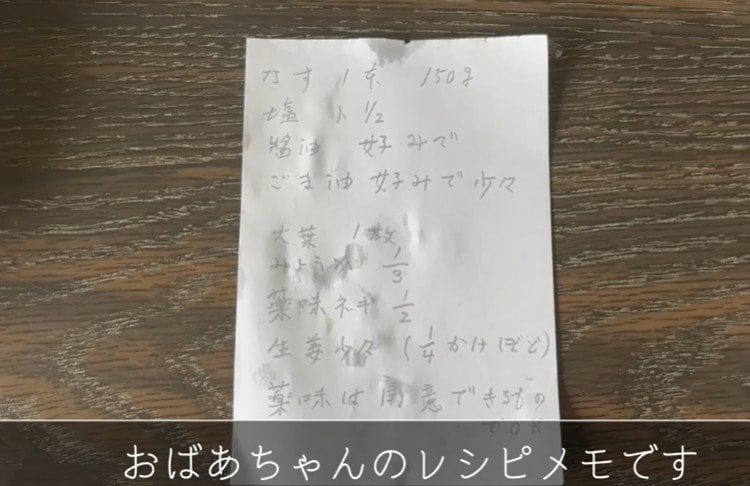 なす 1本 150g
塩 小 1/2
醬油 好みで
ごま油 好みで 少々
大葉 1枚
みょうが 1/3
薬味ネギ 1/2
生姜少々 (1/4かけほど)
薬味は用意できるもの
でOK
おばあちゃんのレシピメモです